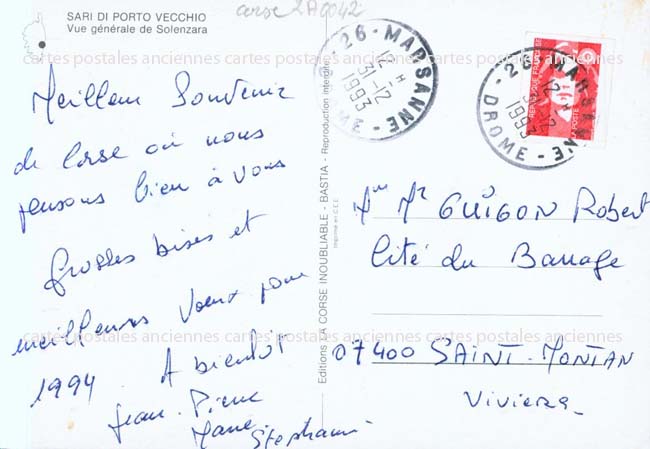 SARI DI PORTO VECCHIO
Vue générale de Solenzara
corse 2A0042
Meilleur Souvenir
de Corse où nous
pensons bien à vous
Grosses bises et
meilleurs Vœux pour
1994. A bientôt
Jean-Pierre
Marie
Stéphanie
Editions LA CORSE INOUBLIABLE - BASTIA - Reproduction interdite
Imprimé en C.E.E.
26 - MARSANNE - DROME
12 H
31-12
1993
26 - MARSANNE - DROME
12 H
31-12
1993
REPUBLIQUE FRANCAISE
LA POSTE
Mme Mr GUIGON Robert
Cité du Barrage
07400 SAINT-MONTAN
Viviers
cartes postales anciennes cartes postales anciennes cartes postales anciennes
cartes postales anciennes cartes postales anciennes cartes postales anciennes
cartes postales anciennes cartes postales anciennes cartes postales anciennes